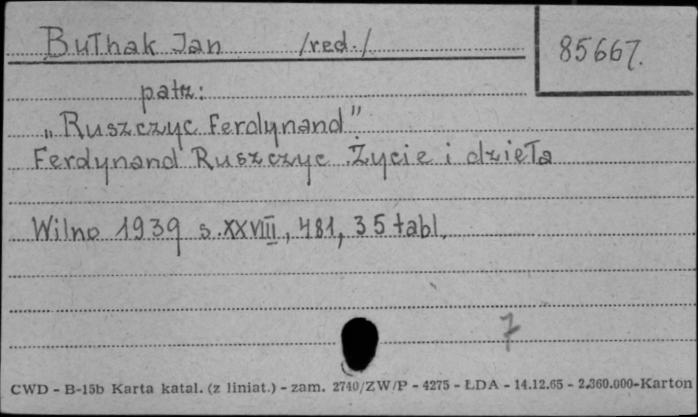 Bułhak Jan /red./
85667.
patrz:
„Ruszczyc Ferdynand”
Ferdynand Ruszczyc. Życie i dzieła
Wilno 1939 s. XXVIII, 481, 35 tabl.
7
CWD - B-15b Karta katal. (z liniat.) - zam. 2740/ZW/P - 4275 - ŁDA - 14.12.65 - 2.360.000-Karton